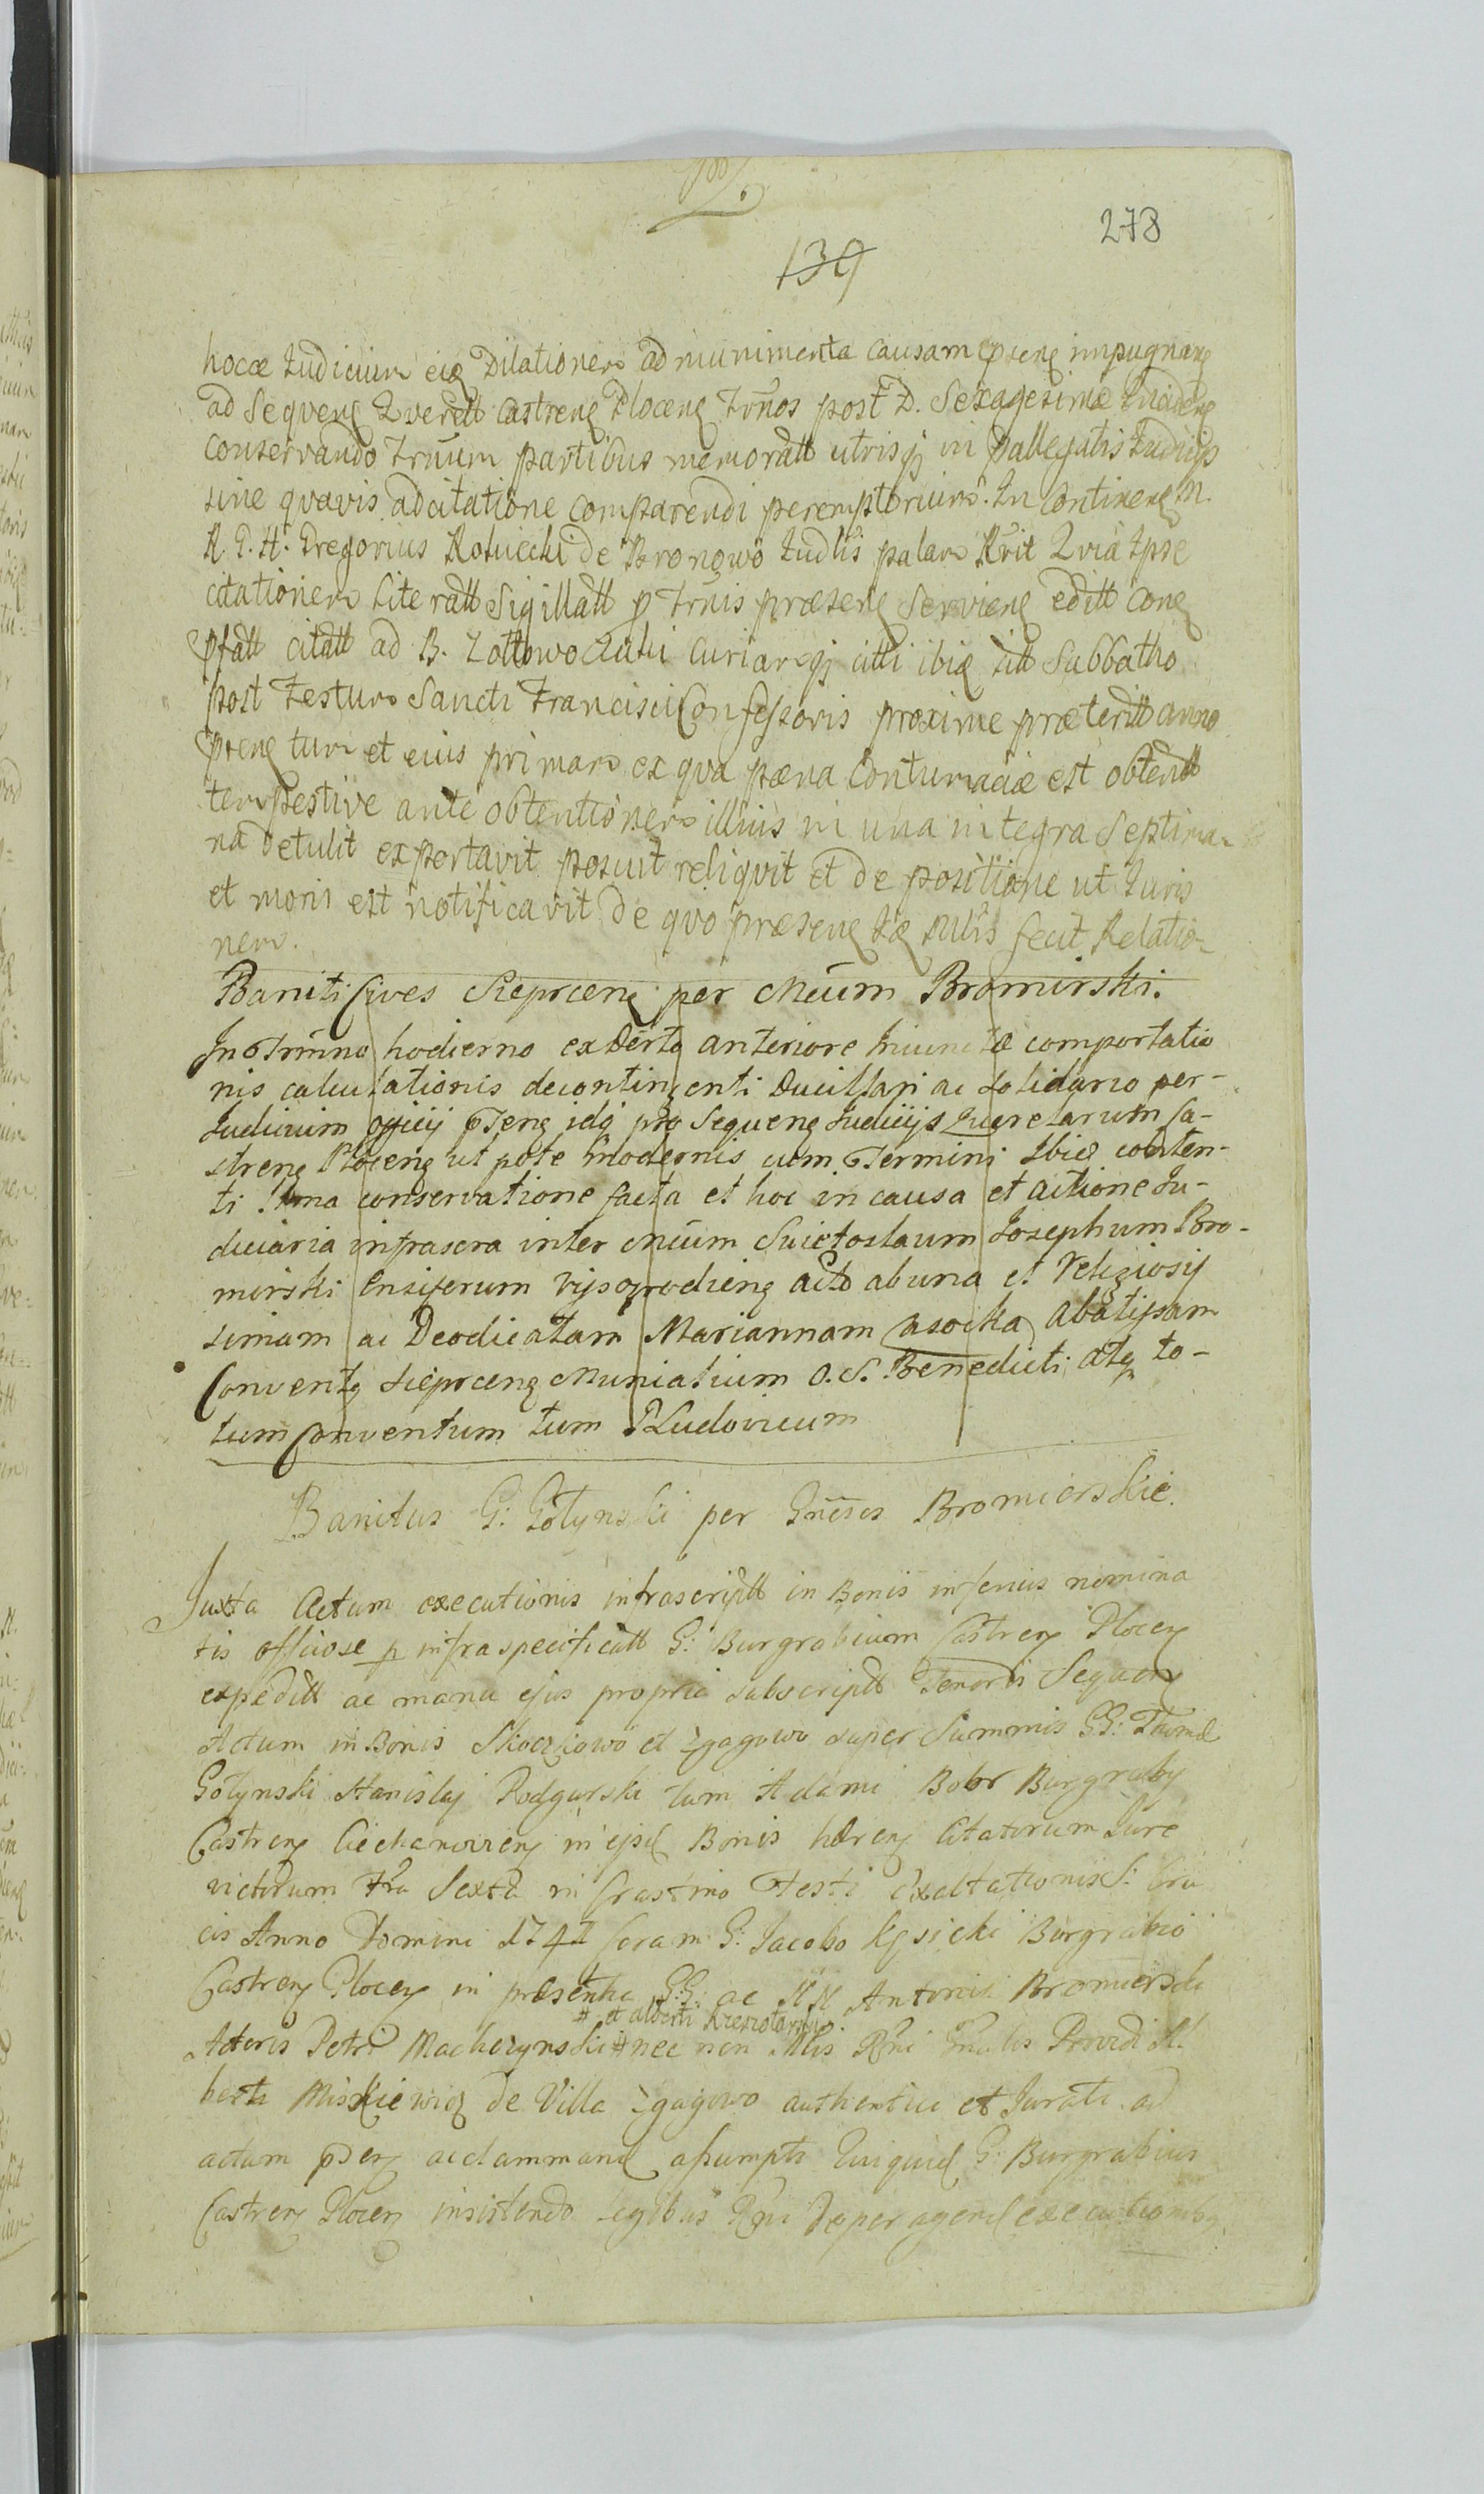 278
139
hocce Judicium eisq Dilationem ad munimenta causam pseng impugnang
ad Sequeng Querell Castreng Ploceng Trños post D. Sexagesimæ
conservando Trñum partibus memoratt utrisqz in Judicijs
sine qvavis adcitatione comparendi peremptorium. In Contineng M.
R. P. H. Gregorius Rościecki de Bronowo Judlis palam Rvit Qvia Ipse
citationem Literatt Sigillatt p Trñis præseng Servieng editt
pfatt citatt ad B. Zottowo curiamqz citti ibiq Sabbatho
post Festum Sancti Francisci Confessoris proxime præteritt anno
pseng tum et eius primam ex qva pæna Contumaciæ est obtentt
tempestive ante obtentionem illius in una integra Septima-
na Detulit exportavit posuit reliqvit et de positione ut Juris
et moris est notificavit De qvo præseng fecit Relatio-
nem.
Baniti Cives Sieprceng per Mcũm Bromirski.
In Trmno hodierno ex Dẽrto anteriore comportatio
nis calculationis decontingenti Ducillari ac solidario per-
Judicium officij pseng idq pro Sequeng Judicijs Querelarum Ca-
streng Ploceng ut pote modernis cum Termini Ibiq conten-
ti conservatione facta et hoc in causa et actione Ju-
diciaria infrascra inter Mcũm Swiętoslaum Josephum Bro-
mirski Ensiferum Vysogrodieng acto ab una et Religiosis
simam ac Deodicatam Mariannam Abatissam
Conventg Sieprceng Munialium O. S. Benedicti atq to-
tum Conventum tum Ludovicum
Banitus G: Gołynski per Gñesos Bromierskie.
Juxta Actum executionis infrascriptt in Bonis inferius nomina
tis officiose p infraspecificatt G: Burgrabium Castreng Ploceng
expeditt ac manu ejus propria subscriptt Tenoris Sequeng
Actum in Bonis Skoczkowo et Zgagowo super Summis GG:
Gołynski Stanislaj Podgurski tum Adami Bobr Burgraby
Castreng Ciechanovieng in ejsd Bonis hæreng Citatorum Jure
victorum Fra Sexta in Crastino Festi Exaltationis S: Cru
cis Anno Domini 1741 Coram G: Jacobo Kęsicki Burgrabio
Castreng Ploceng in præsentia GG: ac NN Antonii Bromierski
# et alberti
Actoris Petri Machczynski # nec non Mlis Rñi Gnalis Providi Al
berti Miskiewicz de Villa Zgagowo authentici et Jurati ad
actum pseng acclammand assumpti Quiquid G: Burgrabius
Castreng Ploceng insistendo Legibus Rgni De peragend executionibg